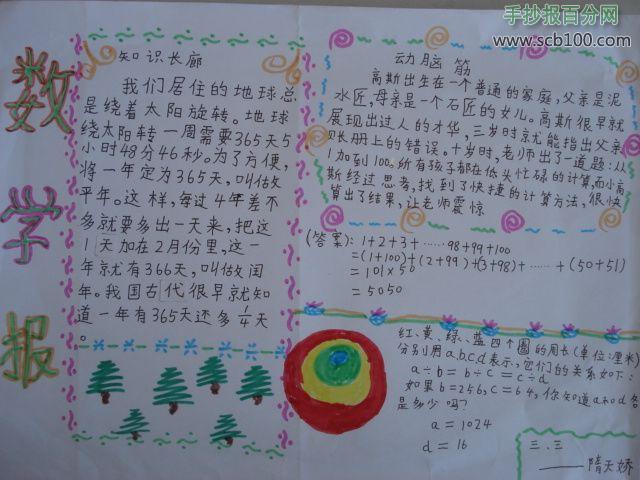 手抄报百分网
www.scb100.com
数学报
知识长廊
我们居住的地球总
是绕着太阳旋转。地球
绕太阳转一周需要365天5
小时48分46秒。为了方便,
将一年定为365天,叫做
平年。这样,每过4年差不
多就要多出一天来,把这
1天加在2月份里,这一
年就有366天,叫做闰
年。我国古代很早就知
道一年有365天还多1/4天
。
动脑筋
高斯出生在一个普通的家庭,父亲是泥
水匠,母亲是一个石匠的女儿。高斯很早就
展现出过人的才华,三岁时就能指出父亲
账册上的错误。十岁时,老师出了一道题:从
1加到100。所有孩子都在低头忙碌的计算,而小高
斯经过思考,找到了快捷的计算方法,很快
算出了结果,让老师震惊
(答案):1+2+3+……98+99+100
=(1+100)+(2+99)+(3+98)+……+(50+51)
=101×50
=5050
红、黄、绿、蓝四个圈的周长(单位:厘米)
分别用a.b.c.d表示,它们的关系如下:
a÷b=b÷c=c÷d
如果b=256,c=64,你知道a和d各
是多少吗?
a=1024
d=16
三.三
——隋天娇